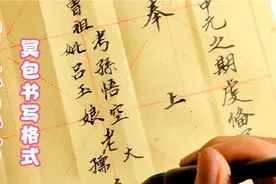 冥包书写格式
中元之期虔备
奉
上
大
考孙悟空老孺
曾祖妣吕玉娘